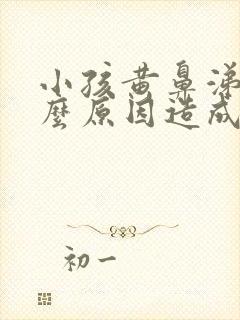 小孩黄鼻涕
麼原因造成
初一